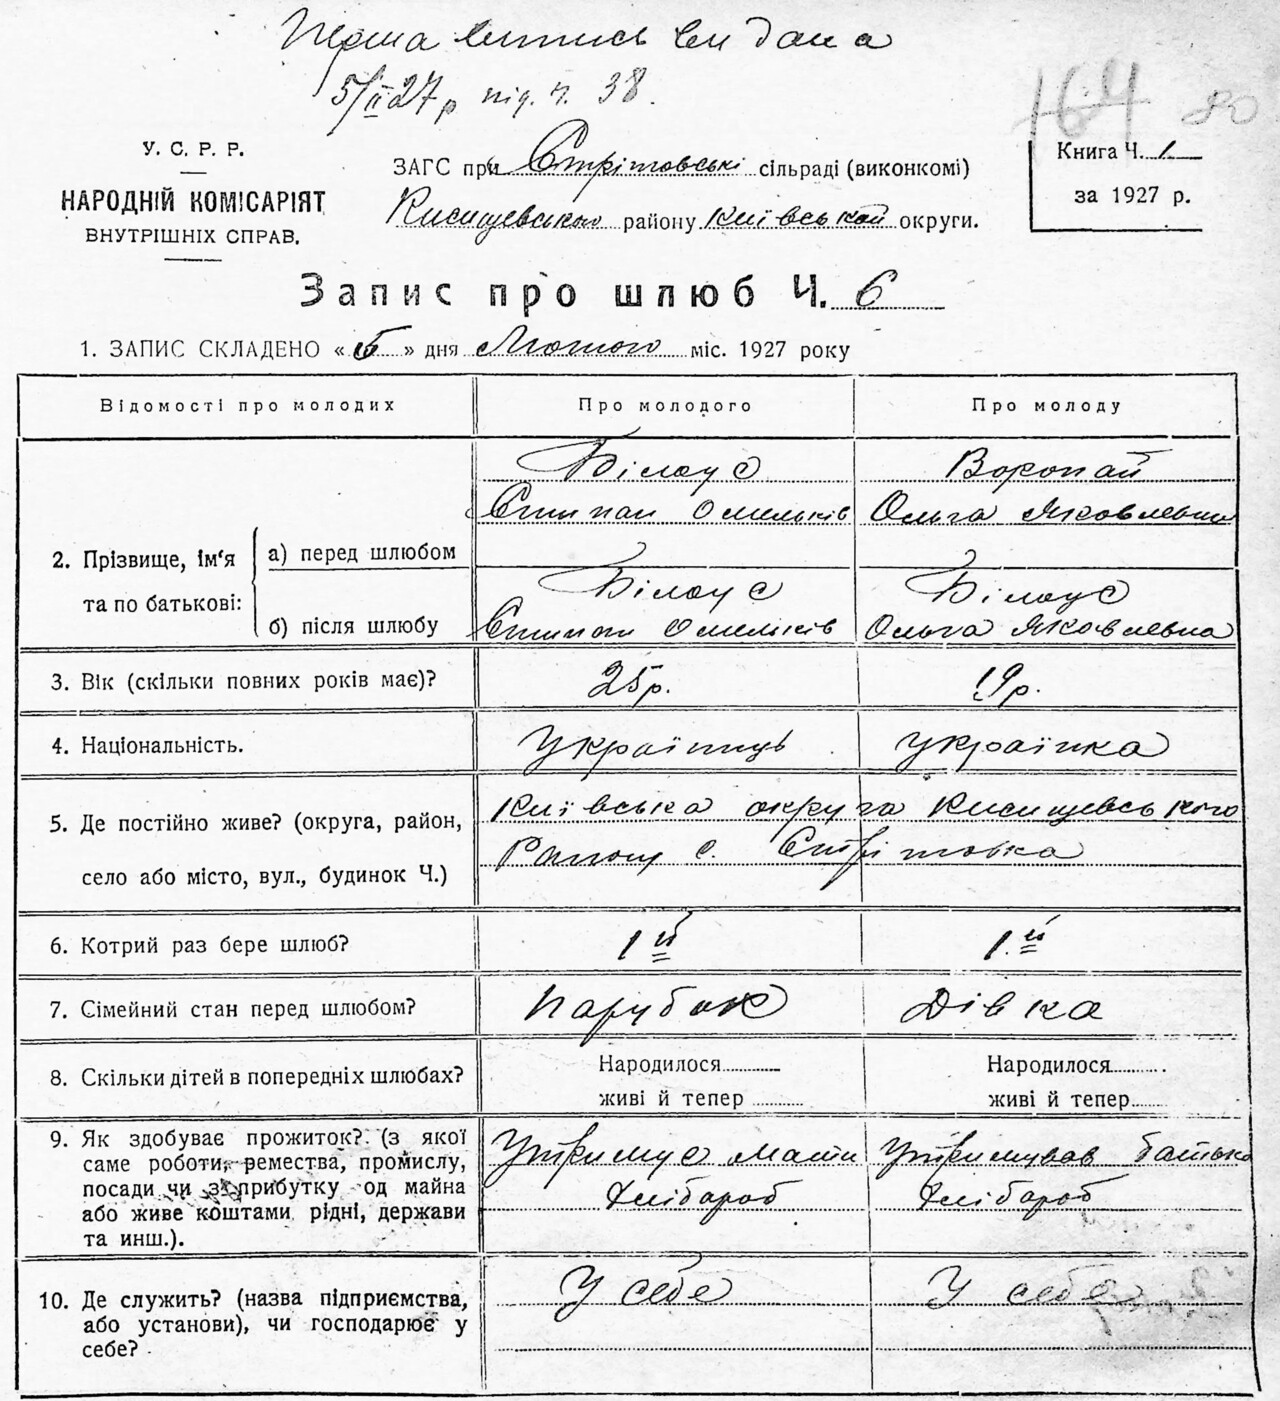 Перша випись видана
5/II 27 р під. ч. 38.
164 80
У. С. Р. Р.
НАРОДНІЙ КОМІСАРІЯТ
ВНУТРІШНІХ СПРАВ.
ЗАГС при Стрітовські сільраді (виконкомі)
Кисищевського району Київськой округи.
Книга Ч. 1
за 1927 р.
Запис про шлюб Ч. 6
1. ЗАПИС СКЛАДЕНО « 5 » дня Лютого міс. 1927 року
Відомості про молодих Про молодого Про молоду
2. Прізвище, ім'я та по батькові:
а) перед шлюбом
Білоус
Степан Омельків
Воропай
Ольга Яковлевна
б) після шлюбу
Білоус
Степан Омельків
Білоус
Ольга Яковлевна
3. Вік (скільки повних років має)? 25 р. 19 р.
4. Національність. Українець Українка
5. Де постійно живе? (округа, район,
село або місто, вул., будинок Ч.)
Київська округа Кисищевського
Району с. Стрітовка
6. Котрий раз бере шлюб? 1й 1й
7. Сімейний стан перед шлюбом? Парубок Дівка
8. Скільки дітей в попередніх шлюбах?
Народилося
живі й тепер
Народилося
живі й тепер
9. Як здобуває прожиток? (з якої
саме роботи, ремества, промислу,
посади чи з прибутку од майна
або живе коштами рідні, держави
та инш.).
Утримує мати
хлібороб
Утримував батько
хлібороб
10. Де служить? (назва підприємства,
або установи), чи господарює у
себе?
У себе
У себе